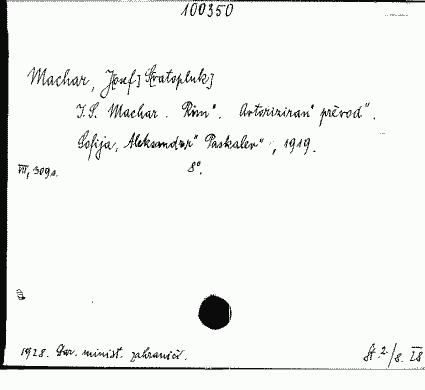 100350
Machar, J[osef] S[vatopluk]
J.S. Machar. Rim". Avtoriziran" prěvod".
Sofija, Aleksandar" Paskalev", 1919.
VII, 309 s. 8°.
1928. Dar. minist. zahranič. St. 2/8. IX